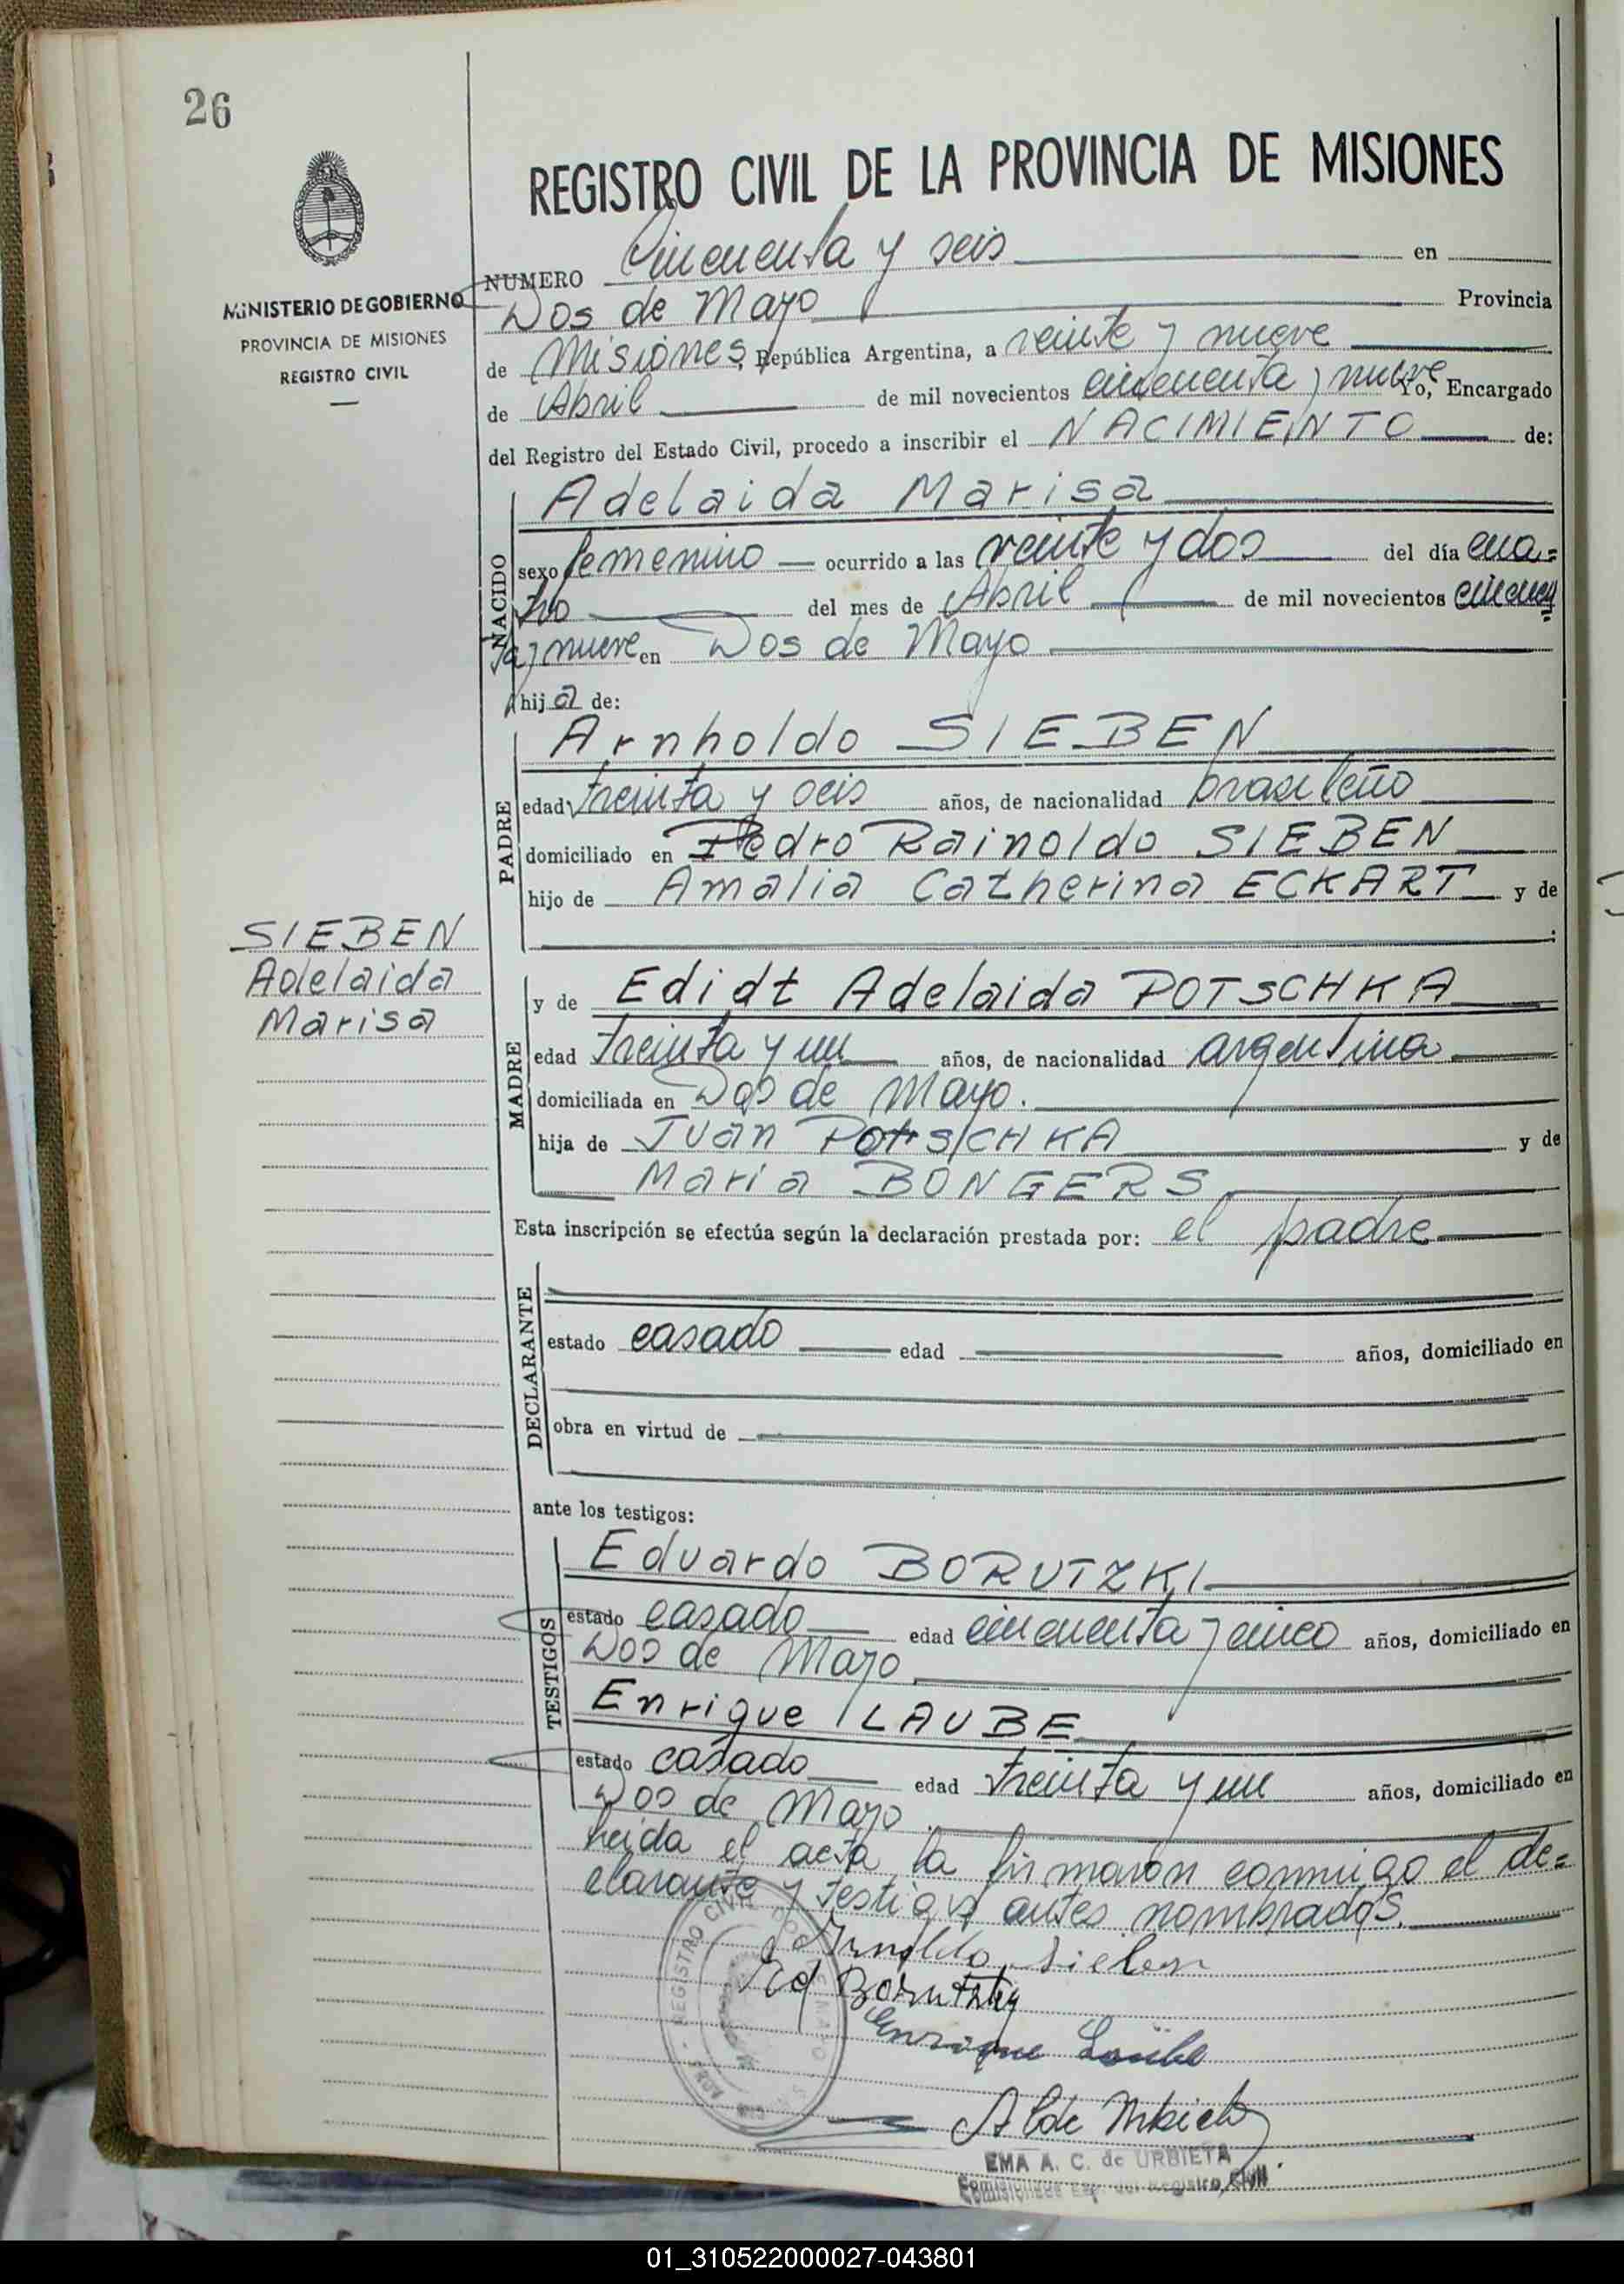 26
REGISTRO CIVIL DE LA PROVINCIA DE MISIONES
MINISTERIO DE GOBIERNO
PROVINCIA DE MISIONES
REGISTRO CIVIL
NUMERO Cincuenta y seis en
Dos de Mayo Provincia
de Misiones, República Argentina, a veinte y nueve
de Abril de mil novecientos cincuenta y nueve Yo, Encargado
del Registro del Estado Civil, procedo a inscribir el NACIMIENTO de:
NACIDO
Adelaida Marisa
sexo femenino ocurrido a las veinte y dos del día cua=
tro del mes de Abril de mil novecientos cincuen
ta y nueve en Dos de Mayo
hija de:
PADRE
Arnholdo SIEBEN
edad treinta y seis años, de nacionalidad brasileño
domiciliado en Pedro Rainoldo SIEBEN
hijo de Amalia Catherina ECKART y de
SIEBEN
Adelaida
Marisa
MADRE
y de Edidt Adelaida POTSCHKA
edad treinta y un años, de nacionalidad argentina
domiciliada en Dos de Mayo.
hija de Juan POTSCHKA y de
Maria BONGERS
Esta inscripción se efectúa según la declaración prestada por: el padre
DECLARANTE
estado casado edad años, domiciliado en
obra en virtud de
ante los testigos:
TESTIGOS
Eduardo BORUTZKI
estado casado edad cincuenta y cinco años, domiciliado en
Dos de Mayo
Enrique LAUBE
estado casado edad treinta y un años, domiciliado en
Dos de Mayo
Leida el acta la firmaron conmigo el de=
clarante y testigos antes nombrados.
Arnoldo Sieben
Ed Borutzky
Enrique Laube
REGISTRO CIVIL DOS DE MAYO
EMA A. C. de URBIETA
Registro Civil
01_310522000027-043801